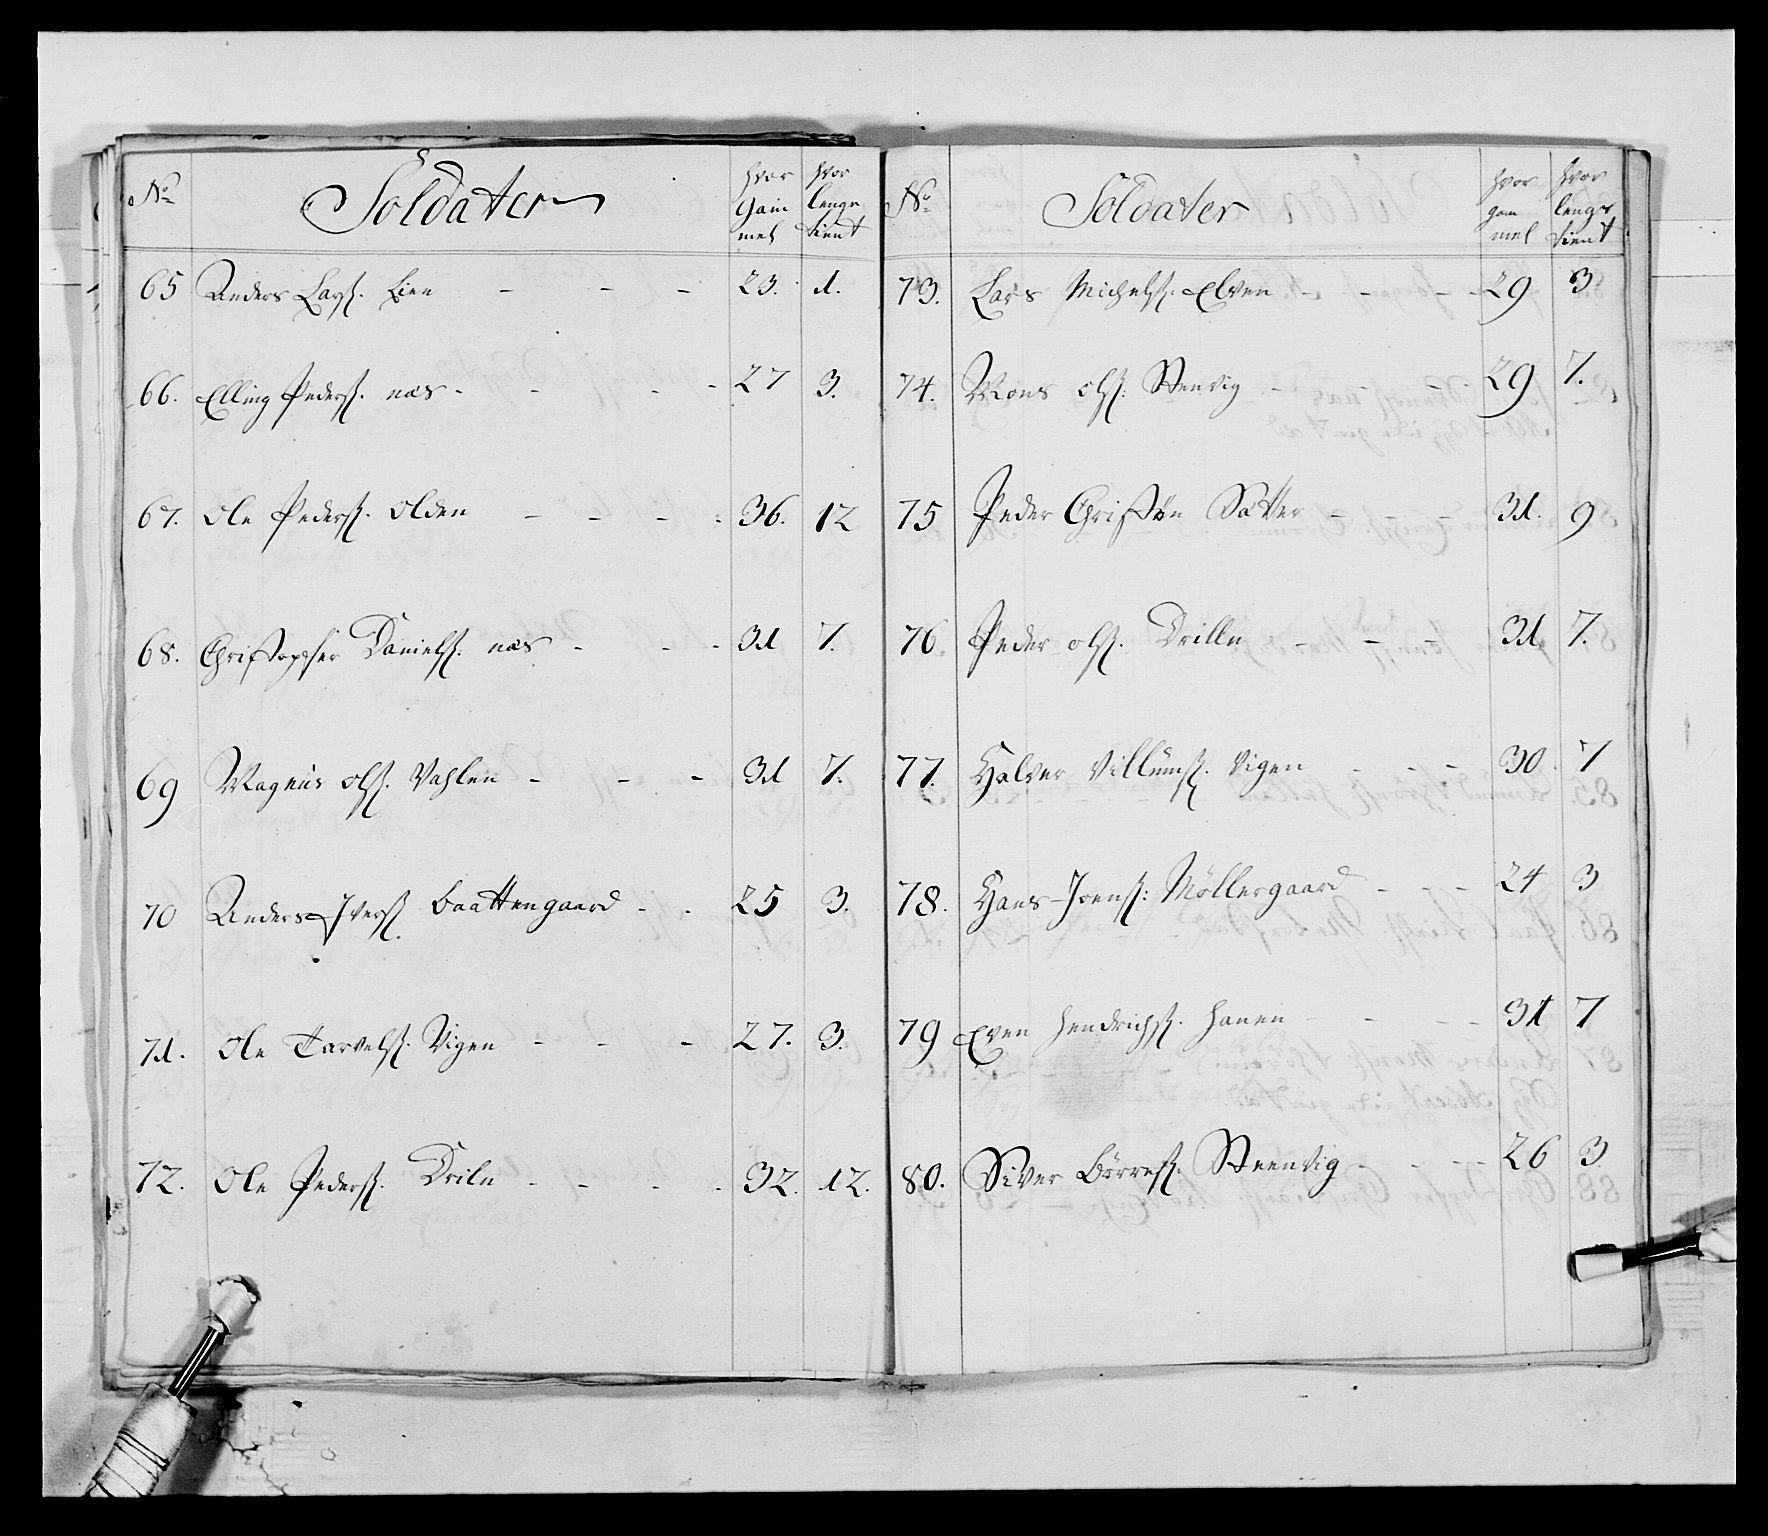 No
Soldater
hvor
Gam
mel
hvor
lenge
tient
65 Anders Larss. Lien - - - 23. 1.
66. Elling Peders. næs - - - - 27 3.
67. Ole Peders. Olden - - - - 36. 12
68. Christopher Daniels. næs - - - 31 7.
69 Magnus Ols. Vahlen - - - 31 7.
70 Anders Ivers. baattengaard - - 25 3.
71. Ole Tarvels. Vigen - - - 27. 3.
72. Ole Peders. Driln - - - - 32. 12.
No
Soldater
hvor
gam
mel
hvor
lenge
tient
73. Lars Michels. Elven - - - - 29 3
74. Mons ols. Stenvig - - - 29 7.
75 Peder Christen Sætter - - - 31. 9
76 Peder ols. Drilln - - - 31 7.
77. Halver Villums. Vigen - - - 30. 7
78. Hans Joens: Møllergaard - - - 24 3
79 Even hendrichs. hanen - - - - 31 7
80. Siver Børres. Steenvig - - - - 26 3